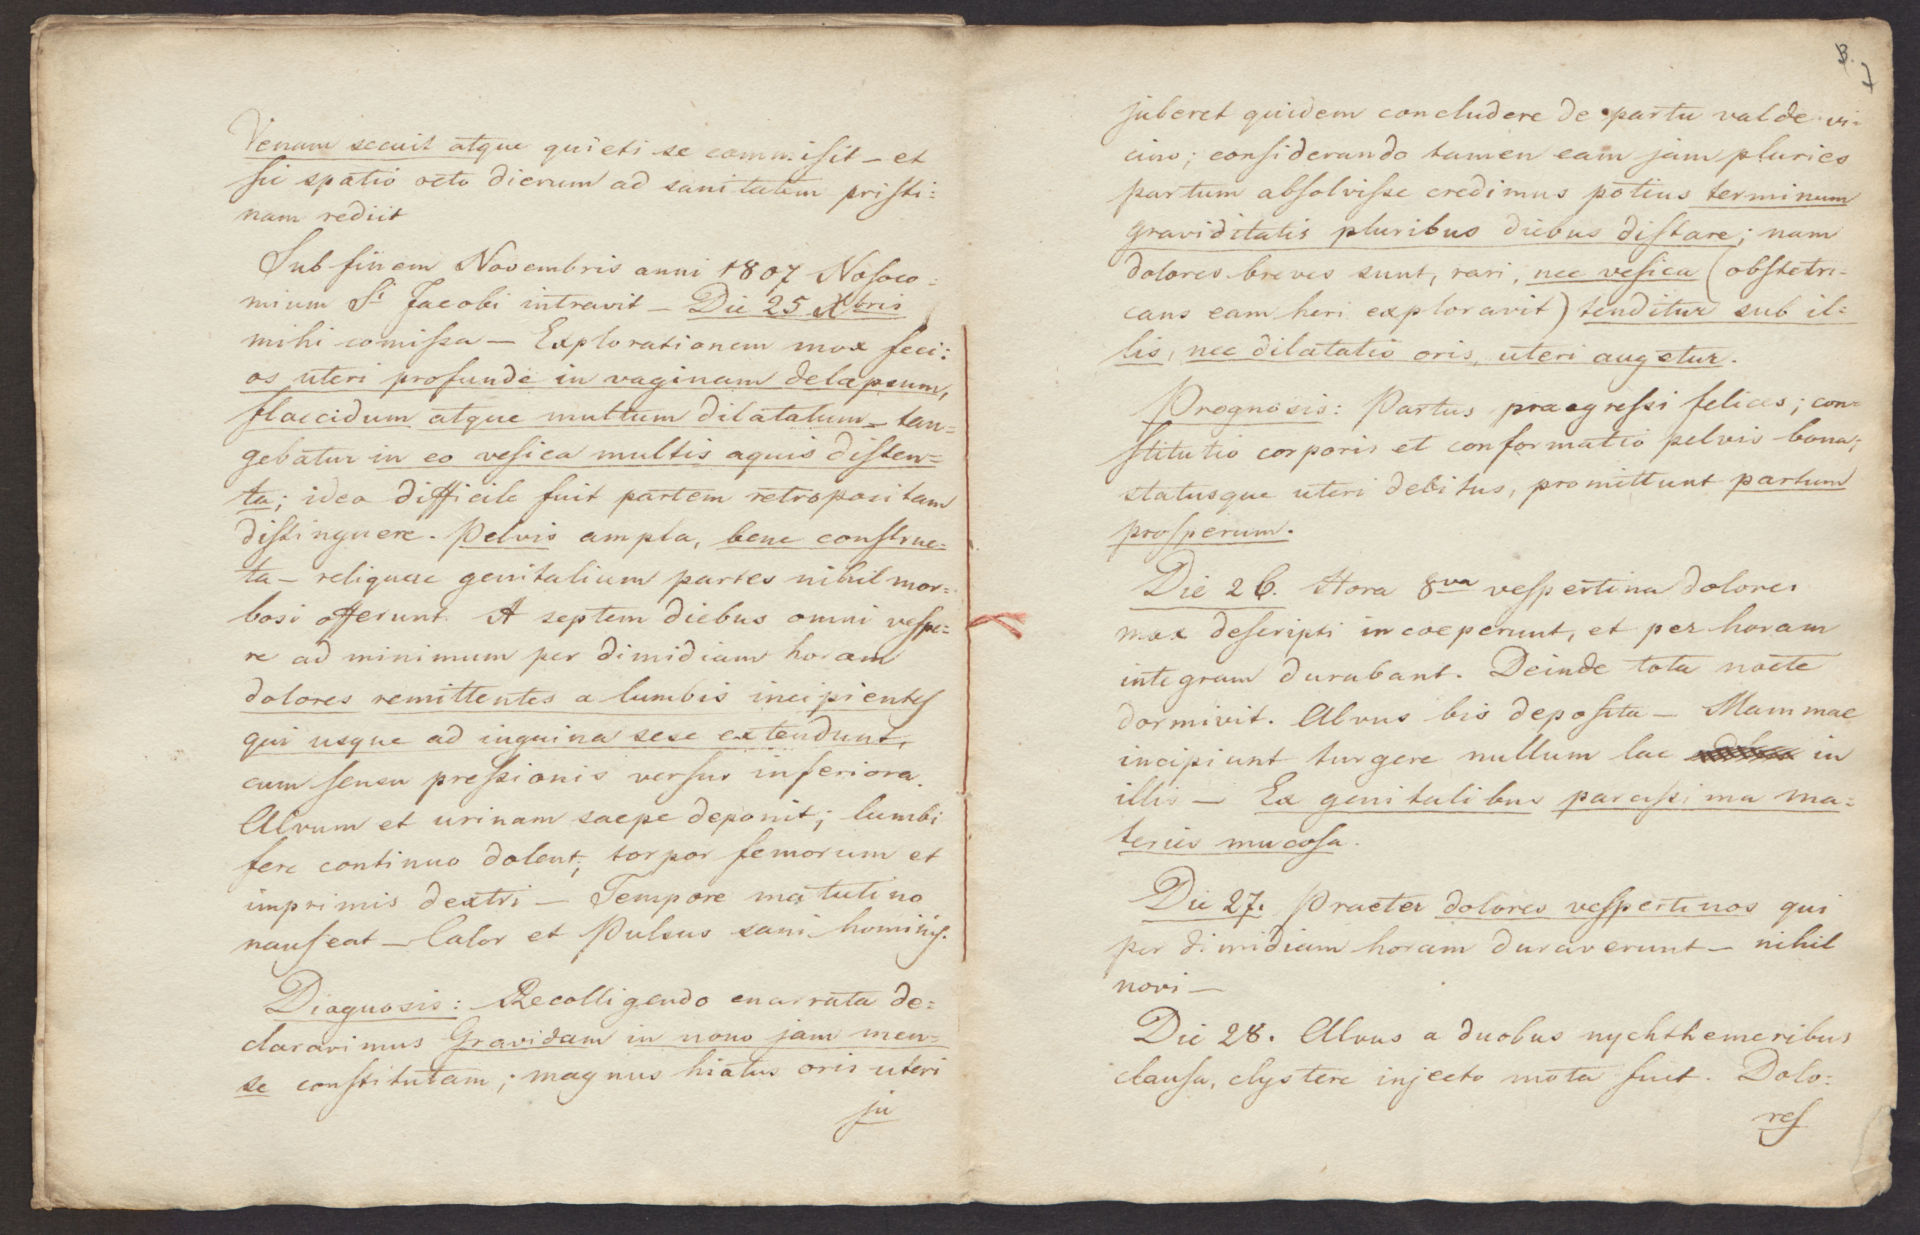 Venam secuit atque quieti se commisit – et
sic spatio octo dierum ad sanitatem pristi:
nam rediit
Sub finem Novembris anni 1807 Nosoco:
mium Sti Jacobi intravit – Die 25 Xbris
mihi comissa – Explorationem mox feci:
os uteri profunde in vaginam delapsum,
flaccidum atque multum dilatatum – tan=
gebatur in eo vesica multis aquis disten=
ta; ideo difficile fuit partem retropositam
distinguere. Pelvis ampla, bene construc=
ta – reliquae genitalium partes nihil mor=
bosi offerunt. A septem diebus omni vespe=
re ad minimum per dimidiam horam
dolores remittentes a lumbis incipientes
qui usque ad inguina sese extendunt,
cum sensu pressionis versus inferiora.
Alvum et urinam saepe deponit; lumbi
fere continuo dolent; torpor femorum et
imprimis dextri – Tempore matutino
nauseat – Calor et Pulsus sani hominis.
Diagnosis: Recolligendo enarrata de=
claravimus Gravidam in nono jam men=
se constitutam; magnus hiatus oris uteri
ju
3.
7
juberet quidem concludere de partu valde vi=
cino; considerando tamen eam jam pluries
partum absolvisse credimus potius terminum
graviditatis pluribus diebus distare; nam
dolores breves sunt, rari, nec vesica (obstetri=
cans eam heri exploravit) tenditur sub il=
lis, nec dilatatio oris uteri augetur.
Prognosis: Partus praegressi felices; con=
stitutio corporis et conformatio pelvis bona;
statusque uteri debitus, promittunt partum
prosperum.
Die 26. Hora 8va vespertina dolores
mox descripti incoeperunt, et per horam
integram durabant. Deinde tota nocte
dormivit. Alvus bis deposita – Mammae
incipiunt turgere nullum lac in
illis – Ex genitalibus parcissima ma=
teries mucosa.
Die 27. Praeter dolores vespertinos qui
per dimidiam horam duraverunt – nihil
novi –
Die 28. Alvus a duobus nychthemeribus
clausa, clystere injecto mota fuit. Dolo=
res